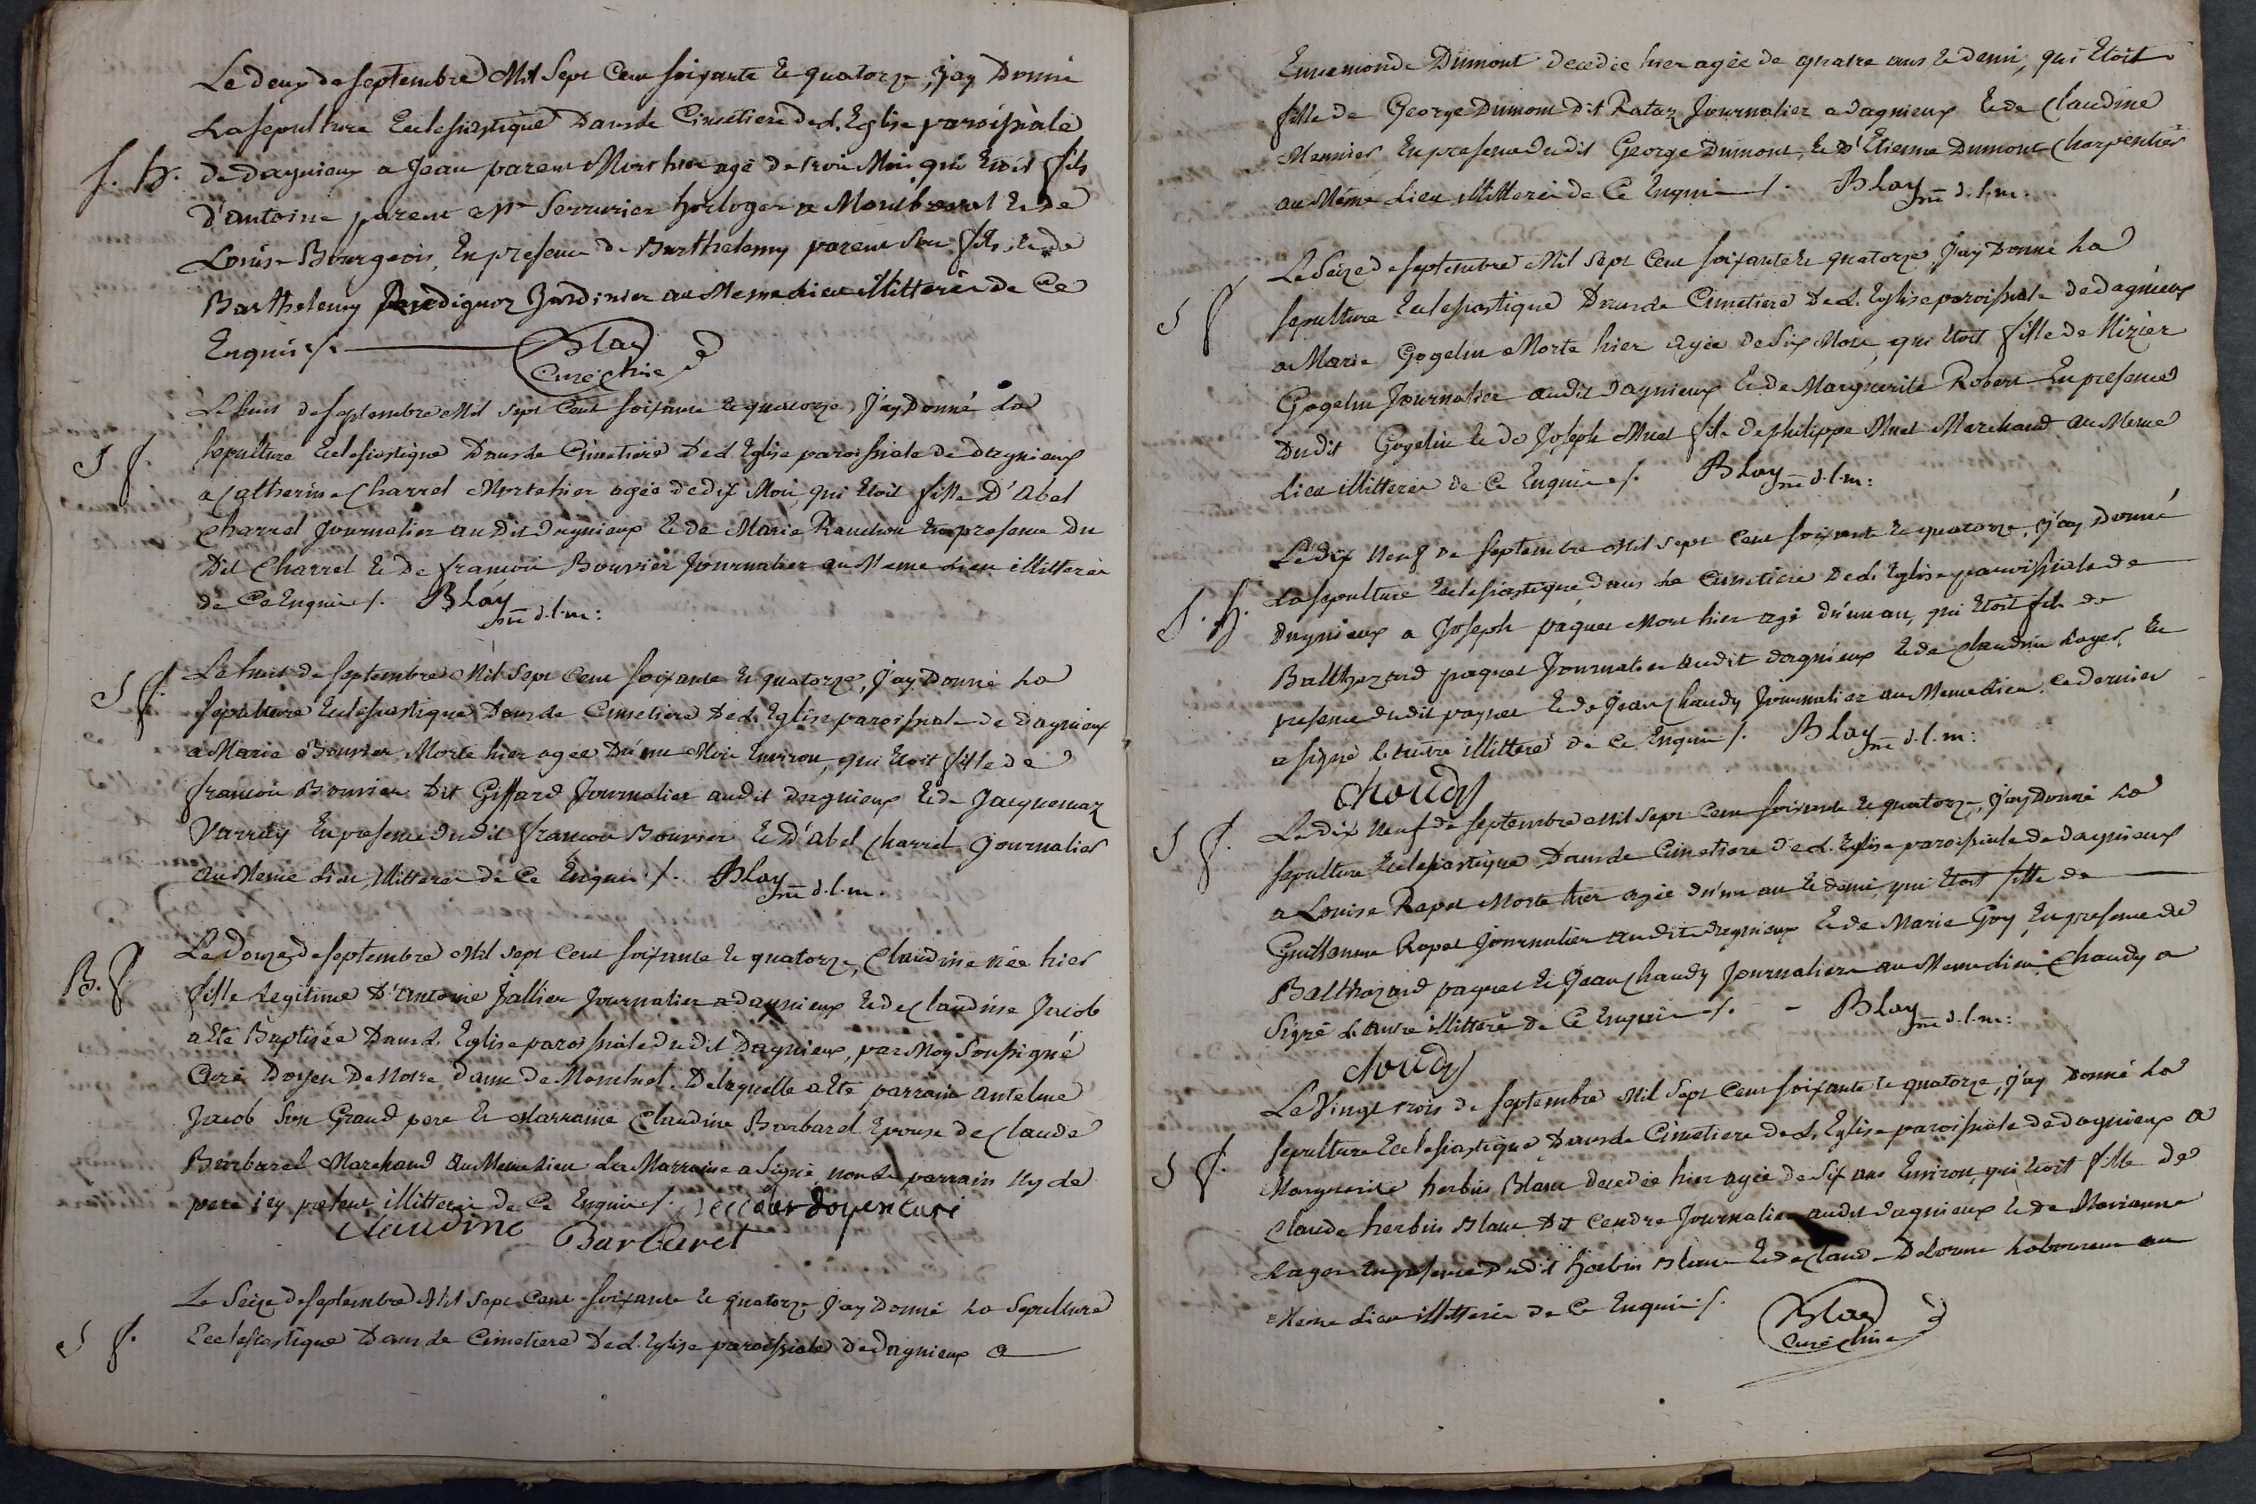 Le deux de septembre Mil Sept Cent soixante et quatorze, j'ay Donné
La sepulture Eclesiastique Dans le Cimetiere de L'Eglise paroissiale
S. h. de Dagnieux a Jean parent Mort hier agé de trois Mois qui Etoit fils
d'antoine parent Me Serrurier horloger a Montluel et de
Louise Bourgeois, En presence de Barthelemy parent Son fils, et de
Barthelemy perdignon Jardinier au Meme Lieu illitterés de Ce
Enquis /.
Blay
Curé
Le huit de septembre Mil Sept Cent soixante et quatorze, j'ay Donné La
S f. sepulture Eclesiastique Dans le Cimetiere De L'Eglise paroissiale de Dagnieux
a Catherine Charrel Morte hier agée de dix Mois, qui Etoit fille D'Abel
Charrel Journalier audit Dagnieux et de Marie En presence Du
Dit Charrel et De francois Bouvier Journalier au Meme Lieu illitterés
de Ce Enquis /. BLay d.l.m:
S f. Le huit de septembre Mil Sept Cent soixante et quatorze, j'ay Donné La
sepulture Eclesiastique Dans le Cimetiere De L'Eglise paroissiale de Dagnieux
a Marie Bouvier Morte hier agée D'un Mois Environ, qui Etoit fille de
francois Bouvier Dit Giffard Journalier audit dagnieux et de Jacquemaz
Varray En presence dudit francois Bouvier et D'abel Charrel Journalier
au Meme Lieu, illitterés de Ce Enquis /. BLay d.l.m.
B. f. Le Douze de septembre Mil Sept Cent soixante et quatorze, Claudine née hier
fille Legitime D'antoine Jallier Journalier a dagnieux et de Claudine Jacob
a Eté Baptisée Dans L'Eglise paroissiale dudit Dagnieux, par Moy Soussigné
Curé Doyen De Notre dame de Montluel. De laquelle a Eté parrain antelme
Jacob Son Grand pere et Marraine Claudine Barbaret Epouse de Claude
Barbaret Marchand au Meme Lieu La Marraine a Signé, non le parrain Ny le
pere icy present illitterés de Ce Enquis /. doyen curé
Claudine Barbaret
Le Seize de septembre Mil Sept Cent soixante et quatorze j'ay Donné La Sepulture
S f. Eclesiastique Dans le Cimetiere De L'Eglise paroissiale de Dagnieux a
Ennemonde Dumont decedée hier agée de quatre ans et demi, qui Etoit
fille de George Dumont dit Rataz Journalier a dagnieux et de Claudine
Meunier En presence dudit George Dumont, et d'Etienne Dumont Charpentier
au Même Lieu illitterés de Ce Enquis /. BLay d.l.m.
Le Seize de septembre Mil Sept Cent soixante et quatorze j'ay Donné La
S f sepulture Eclesiastique Dans le Cimetiere De L'Eglise paroissiale de Dagnieux
a Marie Gogelin Morte hier agée de Six Mois, qui Etoit fille de Nizier
Gogelin Journalier audit Dagnieux et de Marguerite Robert En presence
Dudit Gogelin et de Joseph Muet fils de philippe Muet Marchand au Meme
Lieu illitterés de Ce Enquis /. BLay d.l.m:
Le dix Neuf de septembre Mil Sept Cent soixante et quatorze, j'ay Donné
S. h. La sepulture Eclesiastique dans le Cimetiere De L'Eglise paroissiale de
Dagnieux a Joseph paquet Mort hier agé d'un an, qui Etoit fils de
Balthazard paquet Journalier audit dagnieux et de Claudine Layer, En
presence dudit paquet et de Jean Chaudy Journalier au Meme Lieu. Ce dernier
a signé L'autre illitteré de Ce Enquis /. BLay d.l.m:
Choudy
S f. Le dix Neuf de septembre Mil Sept Cent soixante et quatorze, j'ay Donné La
sepulture Eclesiastique Dans le Cimetiere De L'Eglise paroissiale de dagnieux
a Louise Rapet Morte hier agée d'un an et demi, qui Etoit fille de
Guillaume Rapet Journalier audit dagnieux et de Marie Goy, En presence de
Balthazard paquet et Jean Chaudy Journaliers au Meme Lieu Chaudy a
Signé L'autre illitteré de Ce Enquis /. - BLay d.l.m:
Choudy
Le Vingt trois de septembre Mil Sept Cent soixante et quatorze, j'ay Donné La
S f. sepulture Eclesiastique Dans le Cimetiere de L'Eglise paroissiale de Dagnieux a
Marguerite herbin Blanc decedée hier agée de Six ans Environ, qui Etoit fille de
Claude herbin Blanc Dit Cendre Journalier audit dagnieux et de Marianne
Lager En presence Dudit herbin Blanc et de Claude Delorme Laboureur au
Meme Lieu illitterés de Ce Enquis /.
Blay
Curé